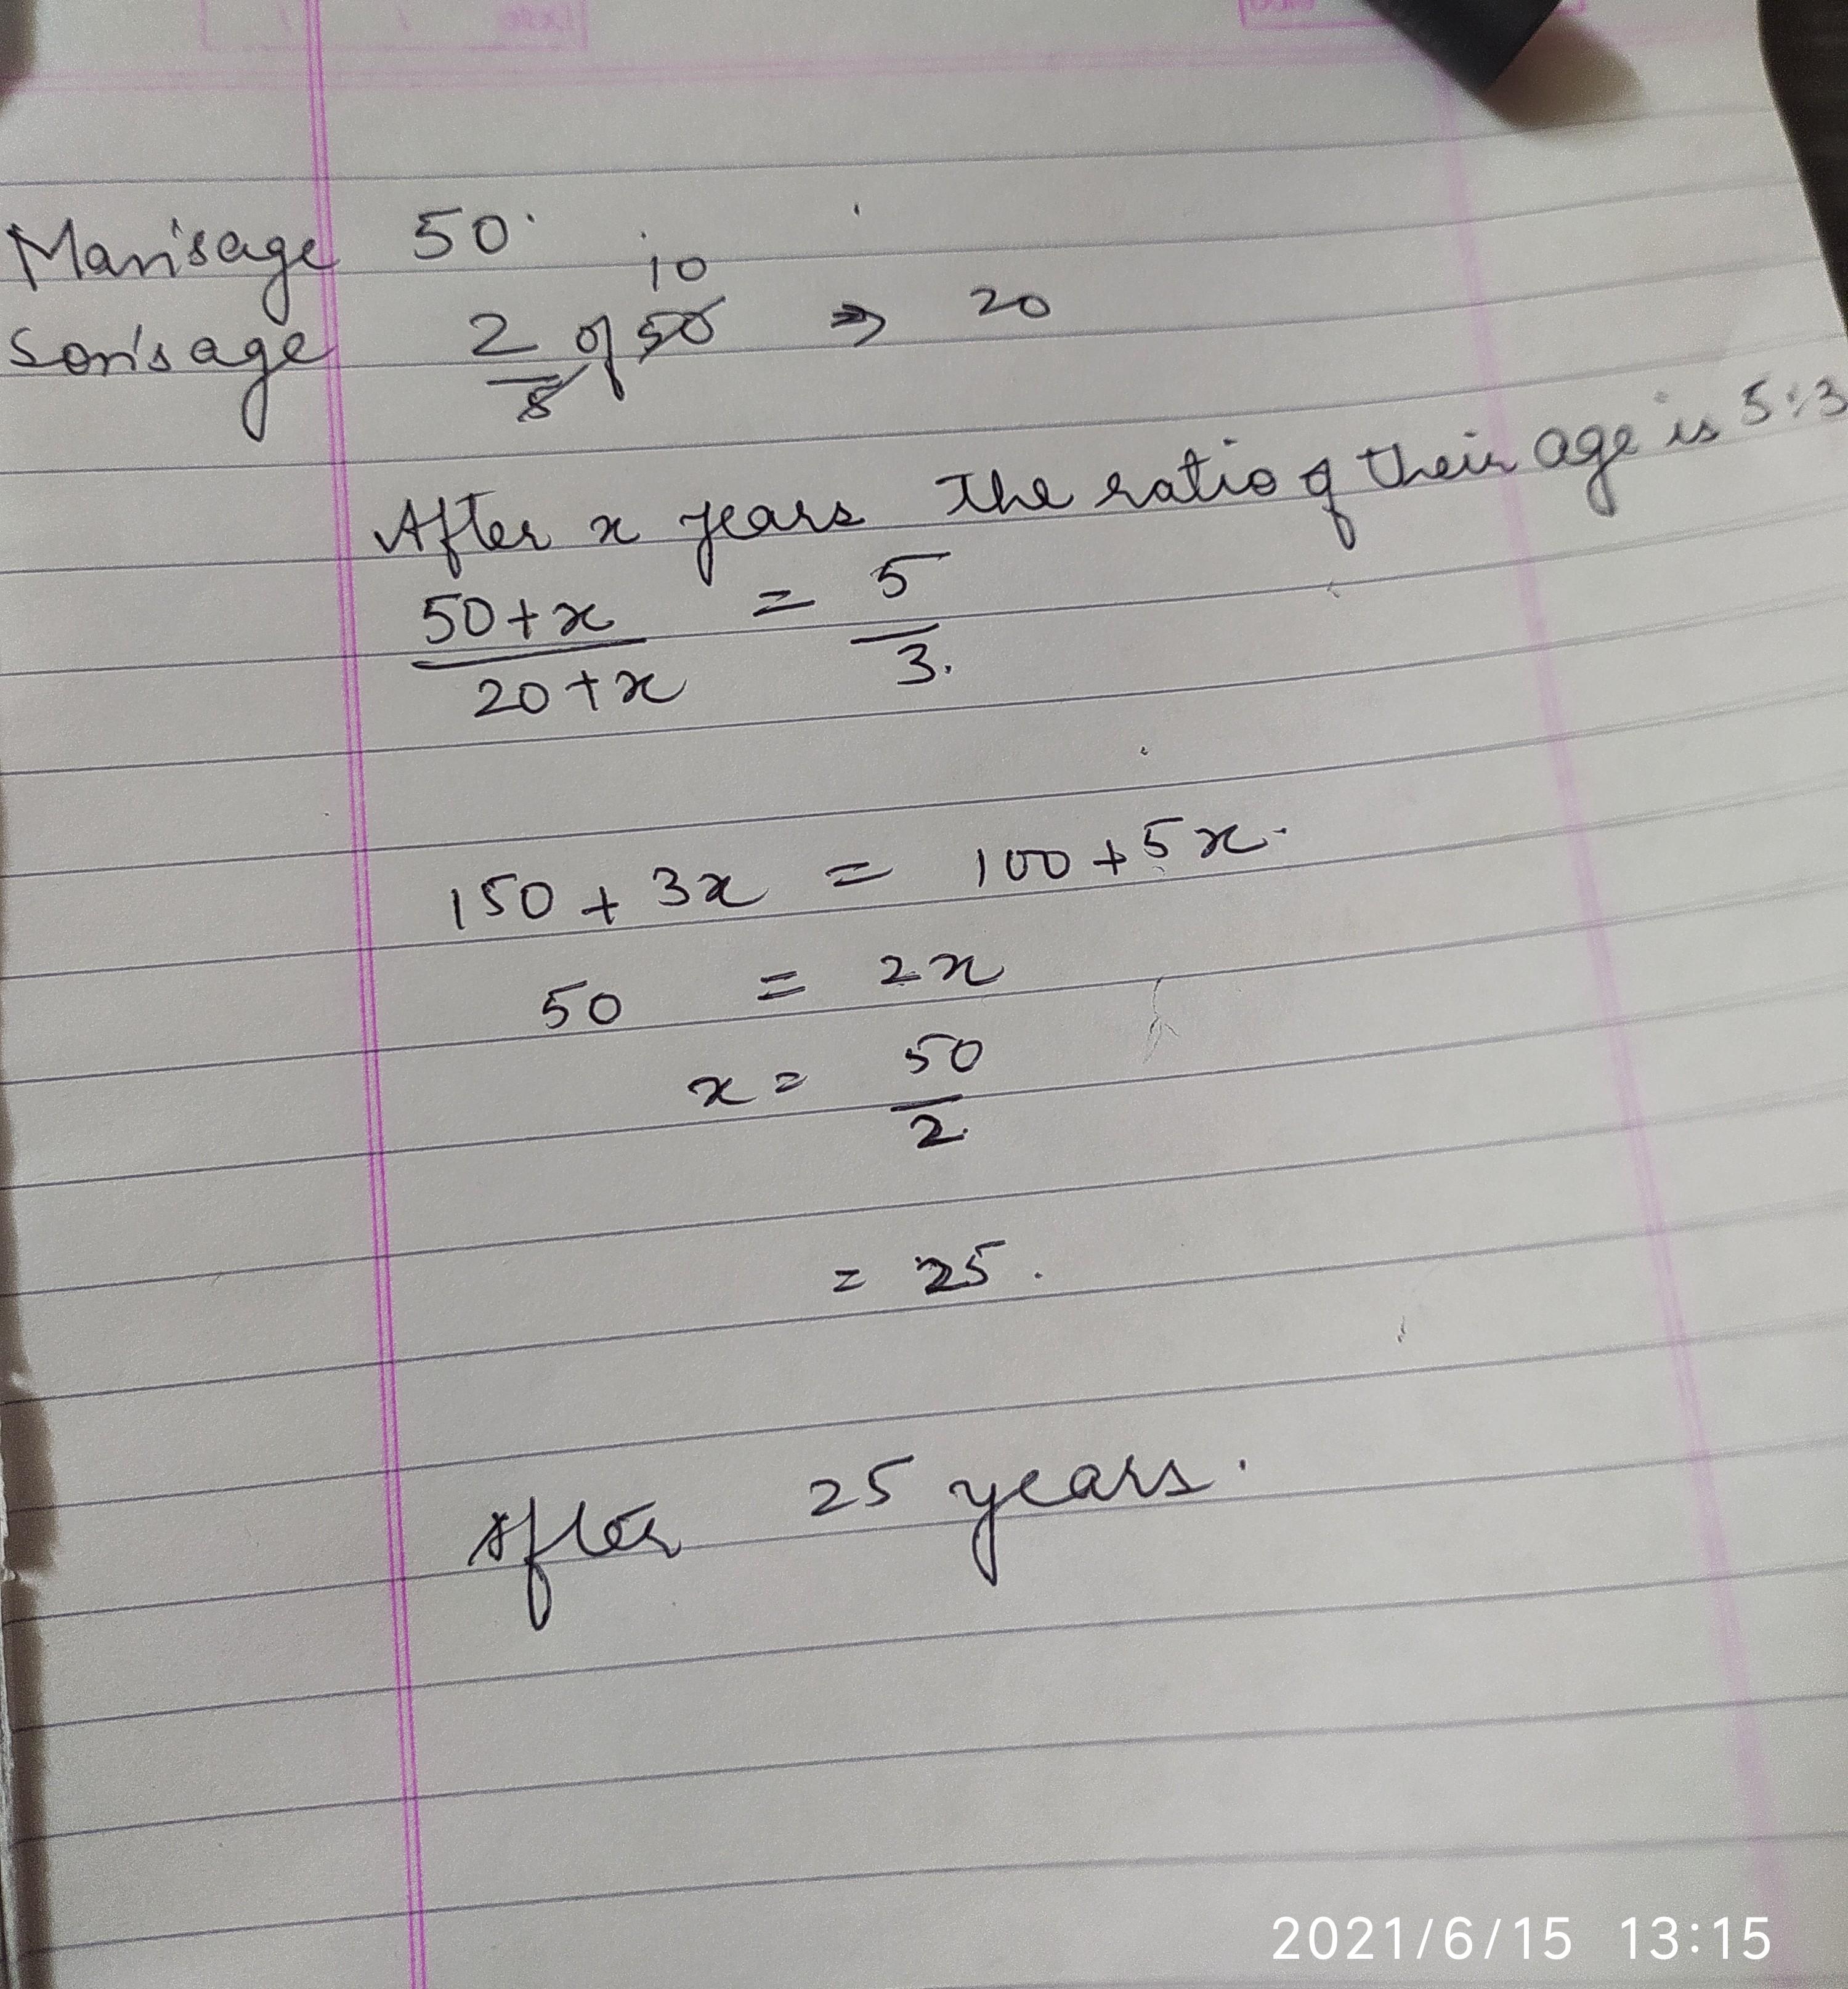 Man's age 50
10
Son's age 2/5 of 50 ⇒ 20
After x years the ratio of their age is 5:3
50+x / 20+x = 5/3.
150 + 3x = 100 + 5x.
50 = 2x
x = 50/2
= 25.
After 25 years.
2021/6/15 13:15